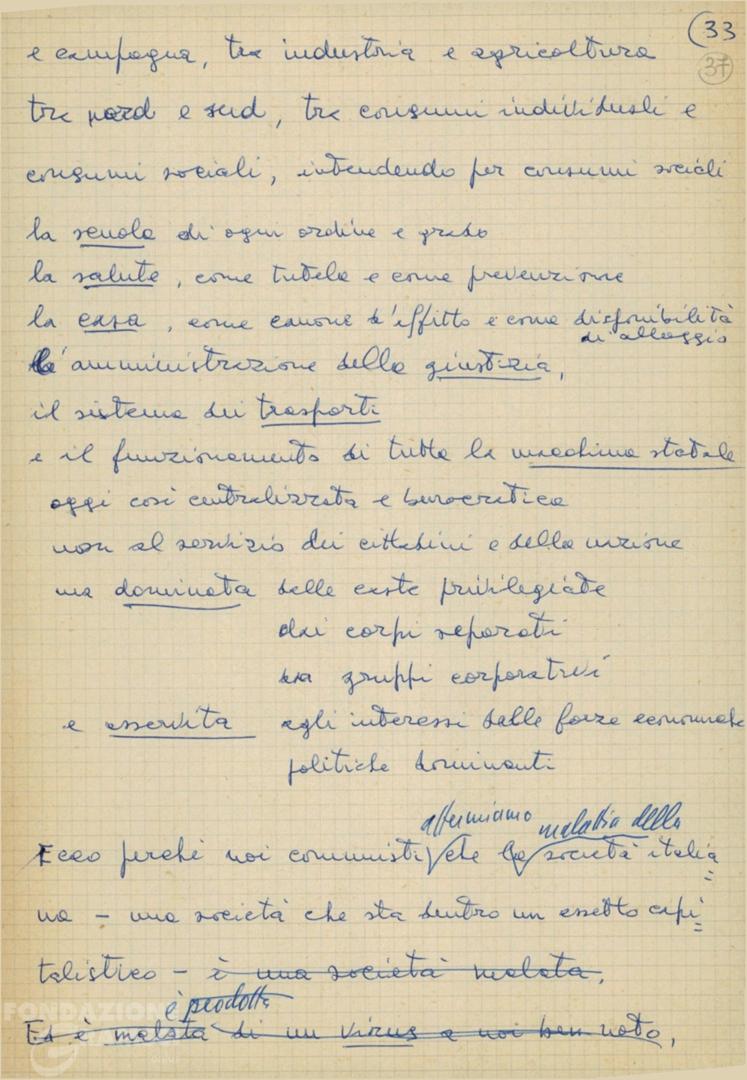 (33
37
e campagna, tra industria e agricoltura
tra nord e sud, tra consumi individuali e
consumi sociali, intendendo per consumi sociali
la scuola di ogni ordine e grado
la salute, come tutela e come prevenzione
la casa, come canone d'affitto e come disponibilità
di alloggio
l'amministrazione della giustizia,
il sistema dei trasporti
e il funzionamento di tutta la macchina statale
oggi così centralizzata e burocratica
non al servizio dei cittadini e della nazione
ma dominata dalle caste privilegiate
dai corpi separati
da gruppi corporativi
e asservita agli interessi delle forze economiche
politiche dominanti
affermiamo malattia della
Ecco perché noi comunisti che la società italia
na – una società che sta dentro un assetto capi
talistico – è una società malata.
è prodotta
Ed è malata di un virus a noi ben noto,
FONDAZIONE